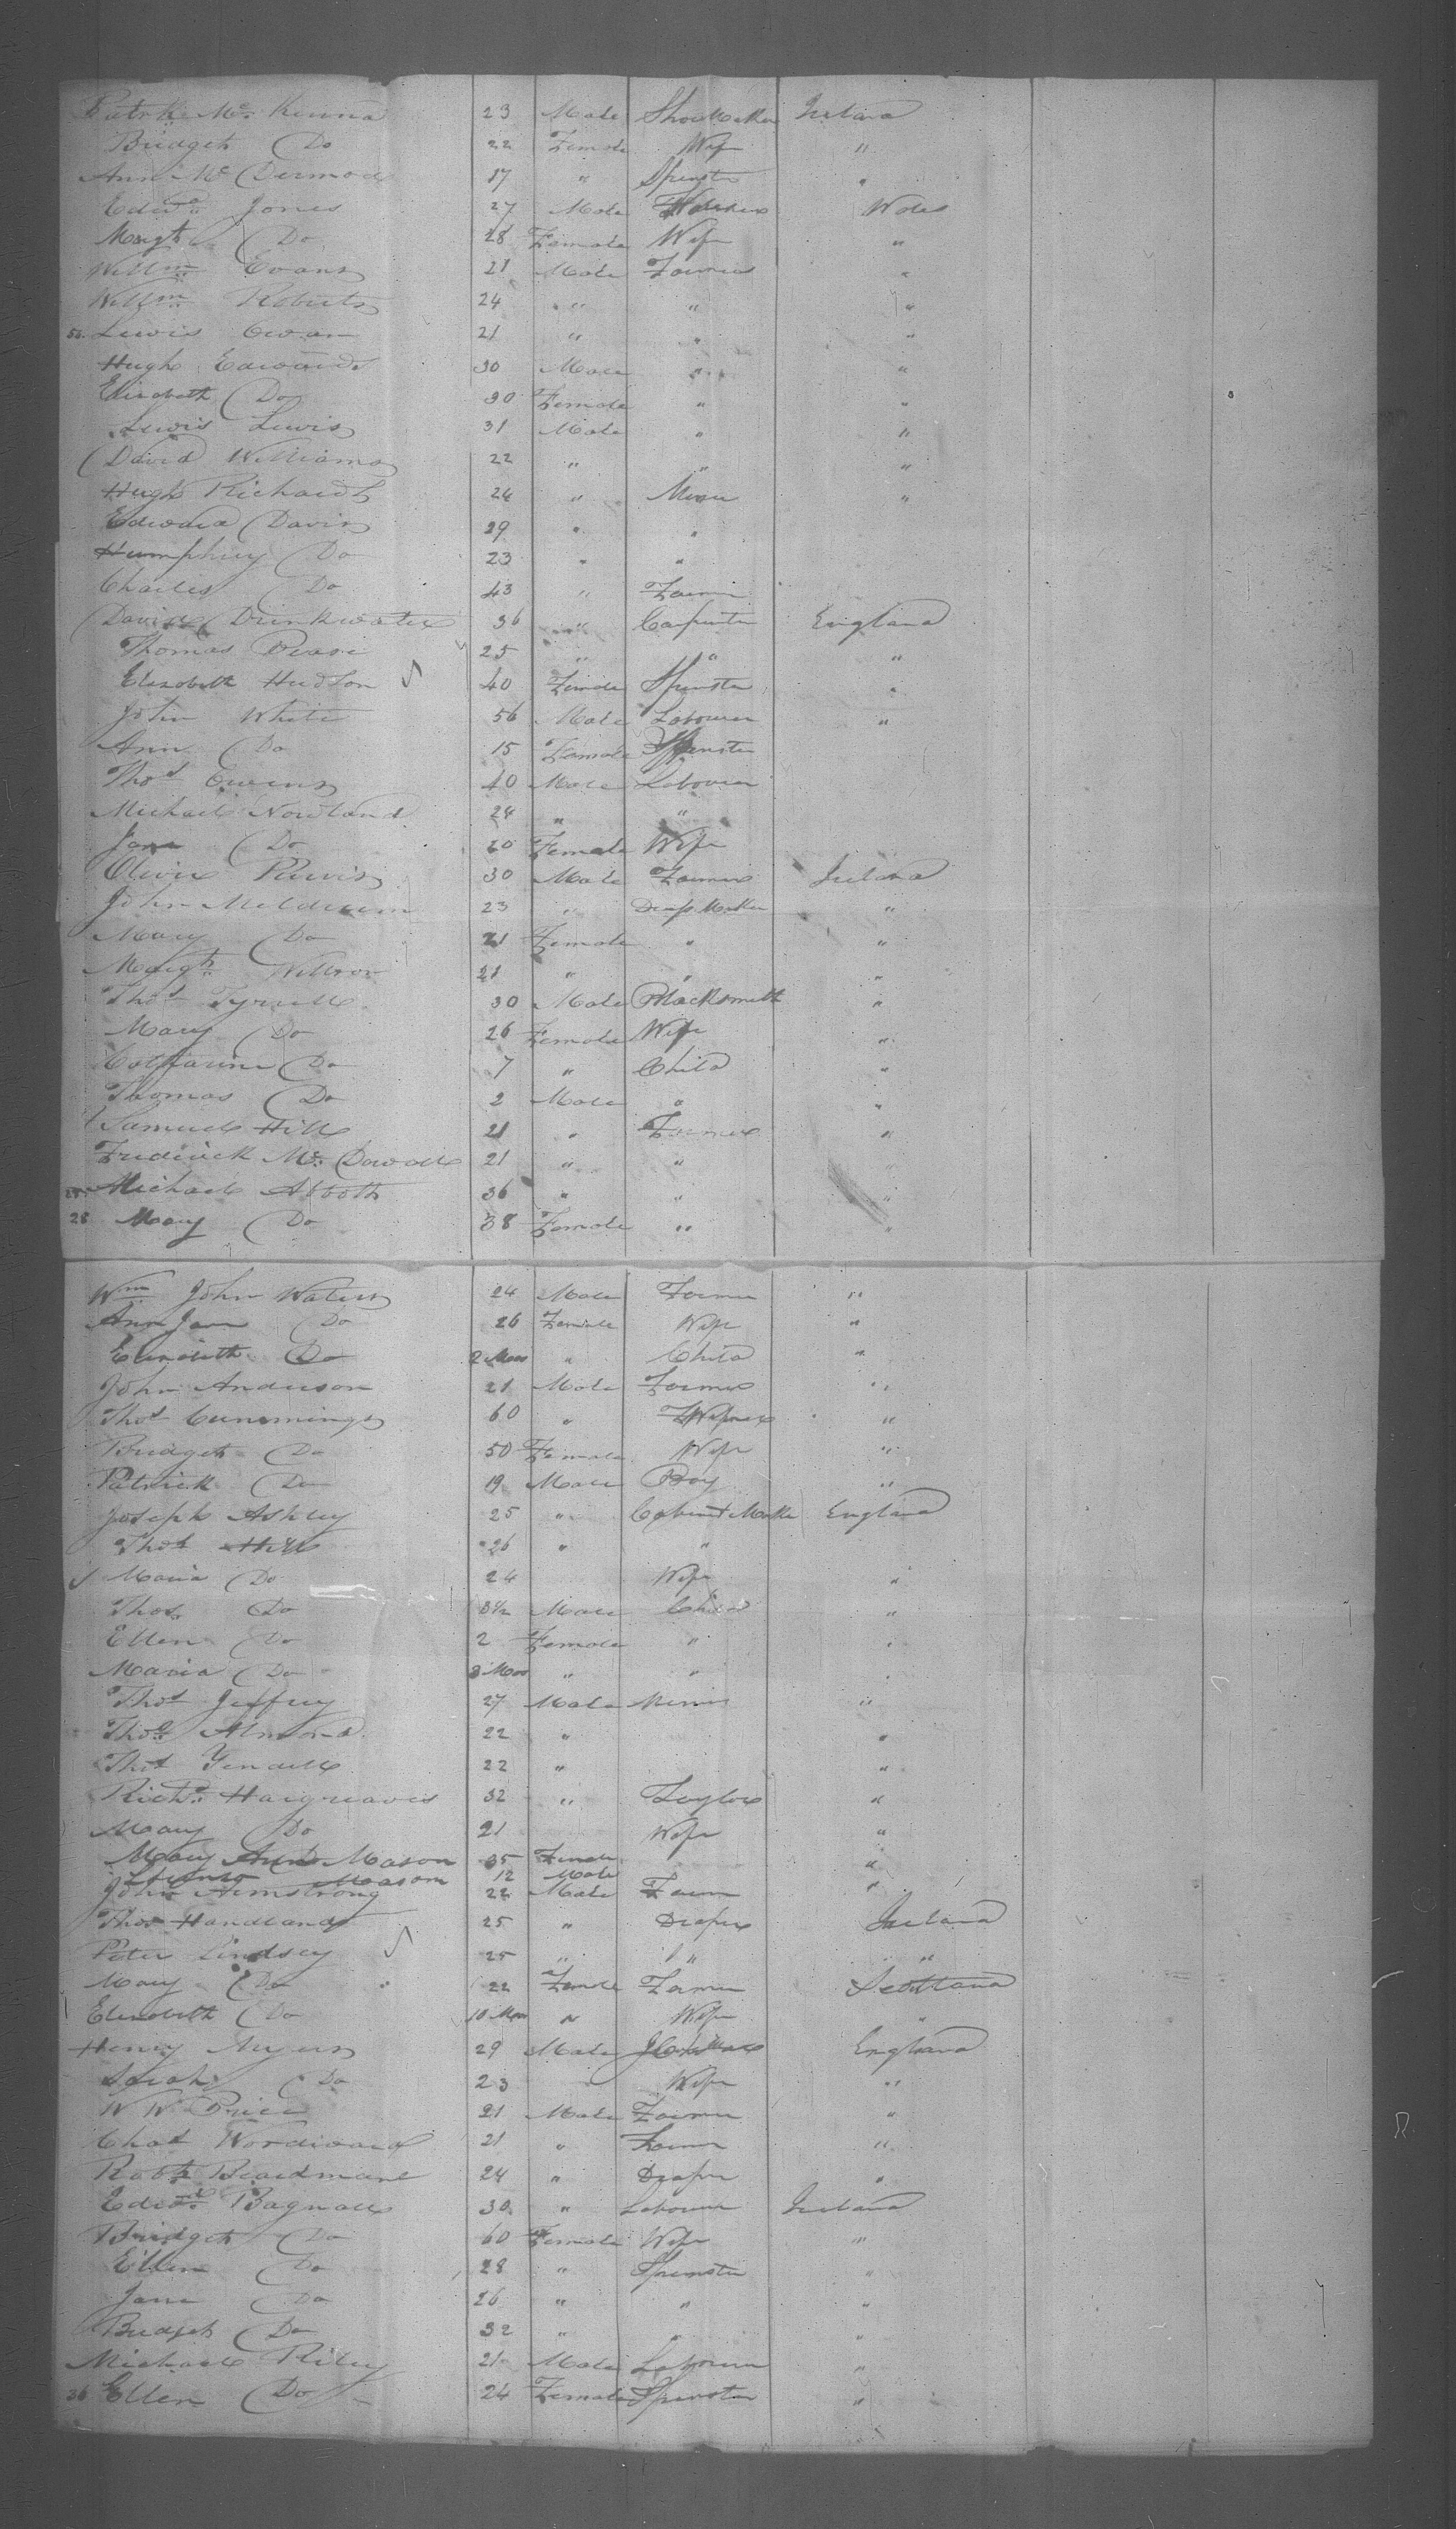 Patrk Mc Kenna 23 Male Shoe Maker Ireland
Bridget Do 22 Female Wife "
Ann Mc Dermod 17 " Spinster "
Edwd Jones 27 Male Wales
Margt Do 28 Female Wife "
Willm Evans 21 Male Farmer "
Willm Roberts 24 " " "
Lewis Owan 21 " " "
Hugh Edwards 30 Male " "
Elizabeth Do 30 Female " "
Lewis Lewis 31 Male " "
David Williams 22 " " "
Hugh Richards 24 " Miner "
Edward Davis 29 " "
Humphrey Do 23 " "
Charles Do 43 " Farmer
David Drinkwater 36 " Carpenter England
Thomas Pease 25 " " "
Elizabeth Hudson 40 Female Spinster "
John White 56 Male Labourer "
Ann Do 15 Female Spinster
Thos Owens 40 Male Labourer
Michael Nowland 24 " "
Jane Do 20 Female Wife
Oliver Purvis 30 Male Farmer Ireland
John Meldrum 23 " Draps Maker "
Mary Do 21 Female " "
Margt Willson 21 " " "
Thos Tyrrell 30 Male Blacksmith "
Mary Do 26 Female Wife "
Catharine Do 7 " Child "
Thomas Do 2 Male " "
Samuel Hill 21 " Farmer "
Fredirick Mc Dowall 21 " " "
Michael Abbott 36 " " "
28 Mary Do 38 Female " "
Wm John Waters 24 Male Farmer "
Ann Jane Do 26 Female Wife "
Elizabeth Do 2 Mos " Child "
John Anderson 21 Male Farmer "
Thos Cummings 60 " "
Bridget Do 50 Female Wife "
Patrick Do 19 Male Boy "
Joseph Ashley 25 " Cabinet Maker England
Thos Hill 26 " "
Maria Do 24 Wife "
Thos Do 3½ Male Child "
Ellen Do 2 Female " "
Maria Do 3 Mos " " "
Thos Jeffrey 27 Male Miner "
Thos Almond 22 " "
Thos Yendell 22 " "
Richd Hargreaves 32 " Taylor "
Mary Do 21 Wife "
Mary Ann Mason 35 Female "
Mason 12 Male
John Armstrong 22 Male Farmer "
Thos Handland 25 " Draper Ireland
Peter Lindsey 25 " " "
Mary Do 22 Female Farmer Scotland
Elizabeth Do 10 Mos " Wife "
Henry Myers 29 Male England
Sarah Do 23 Wife "
W W Price 21 Male Farmer "
Chas Wordward 21 " Farmer "
Robt Boardmant 24 " Draper "
Edwd Bagnall 30 " Labourer Ireland
Bridget Do 60 Female Wife "
Ellen Do 28 " Spinster "
Jane Do 26 " " "
Bridget Do 32 " " "
Michael Riley 21 Male Labourer "
36 Ellen Do 24 Female Spinster "